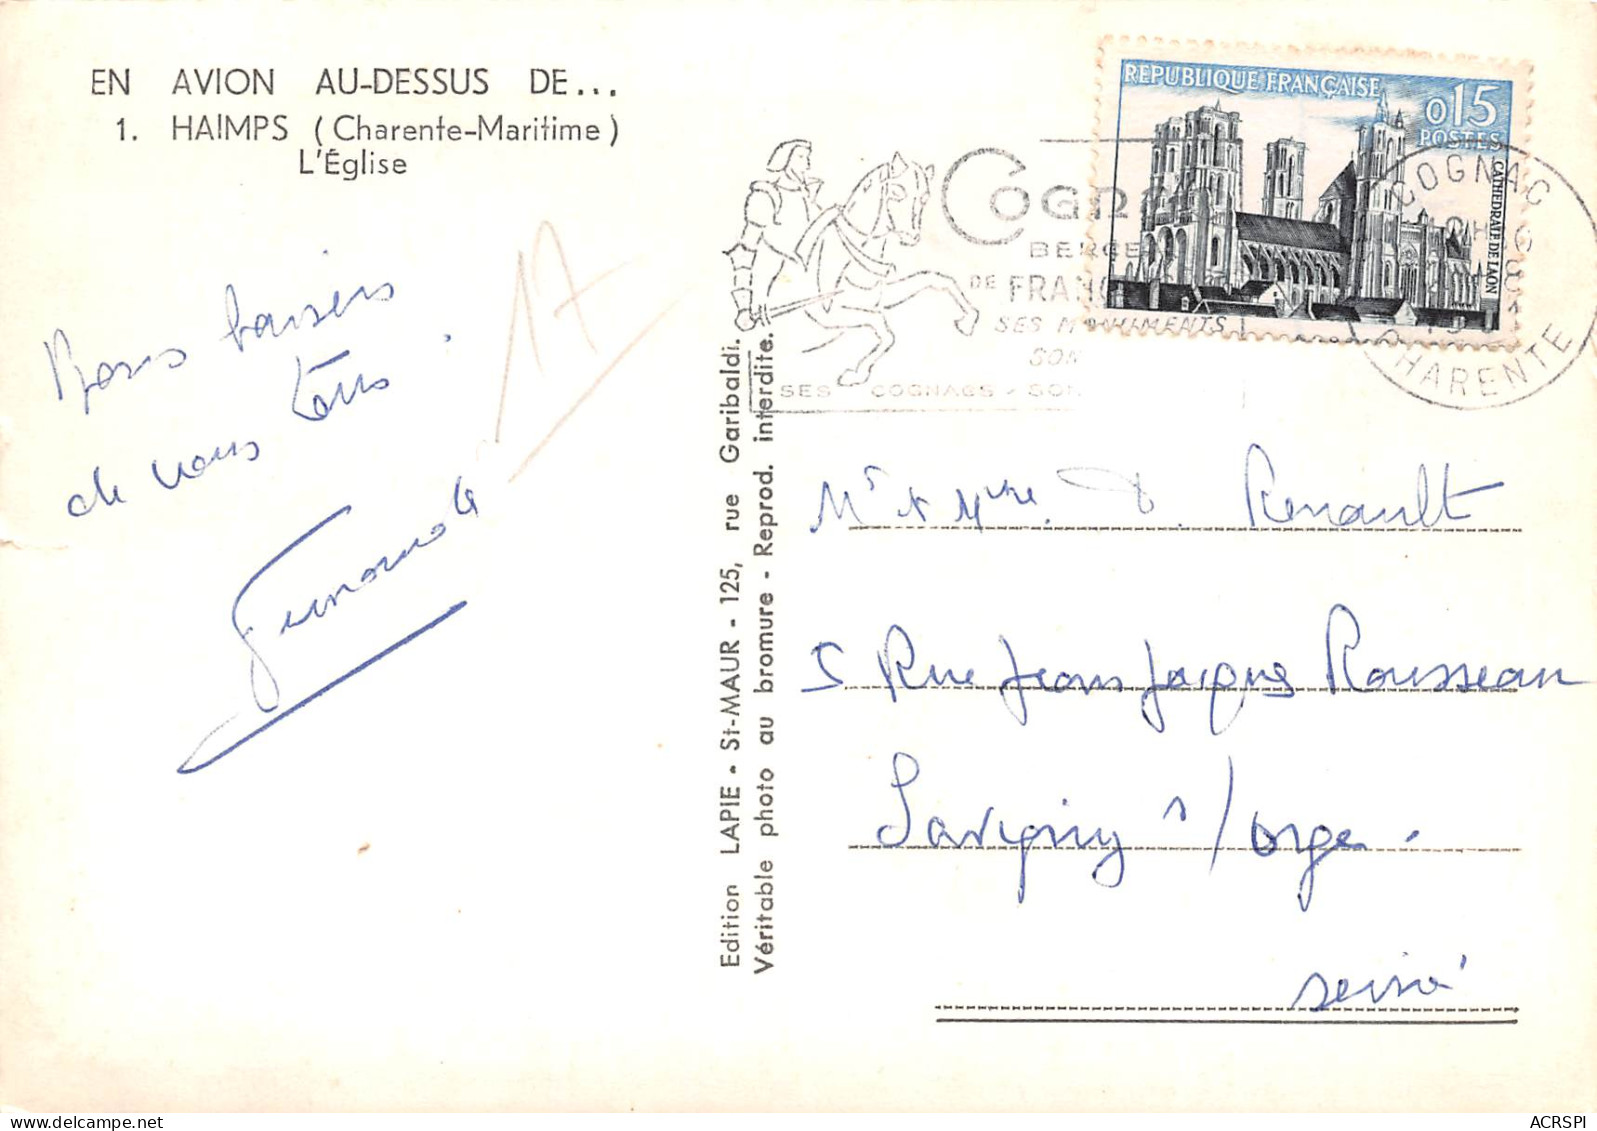 EN AVION AU-DESSUS DE...
1. HAIMPS (Charente-Maritime)
L'Église
Bons baisers
de vous tous.
17
Edition LAPIE - St-MAUR - 125, rue Garibaldi.
Véritable photo au bromure - Reprod. interdite.
COGNAC
BERCE
DE FRANC
SES MONUMENTS
SON
SES COGNACS - SON
REPUBLIQUE FRANÇAISE
0,15
POSTES
CATHEDRALE DE LAON
COGNAC
CHARENTE
Mr & Mme. Renault
5 Rue Jean Jacques Rousseau
Savigny s/orge.